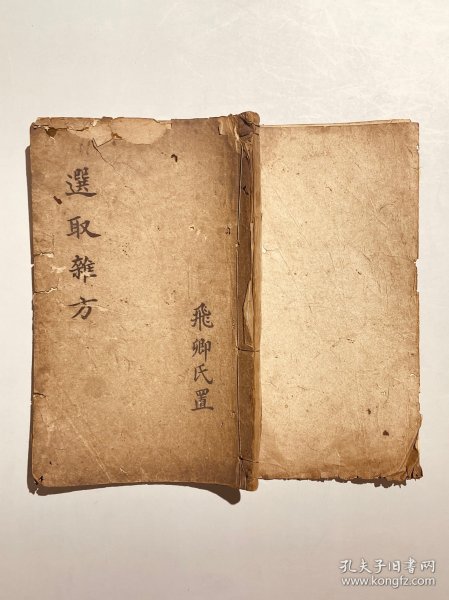 選取雜方
飛卿氏置
孔夫子旧书网
www.kongfz.com